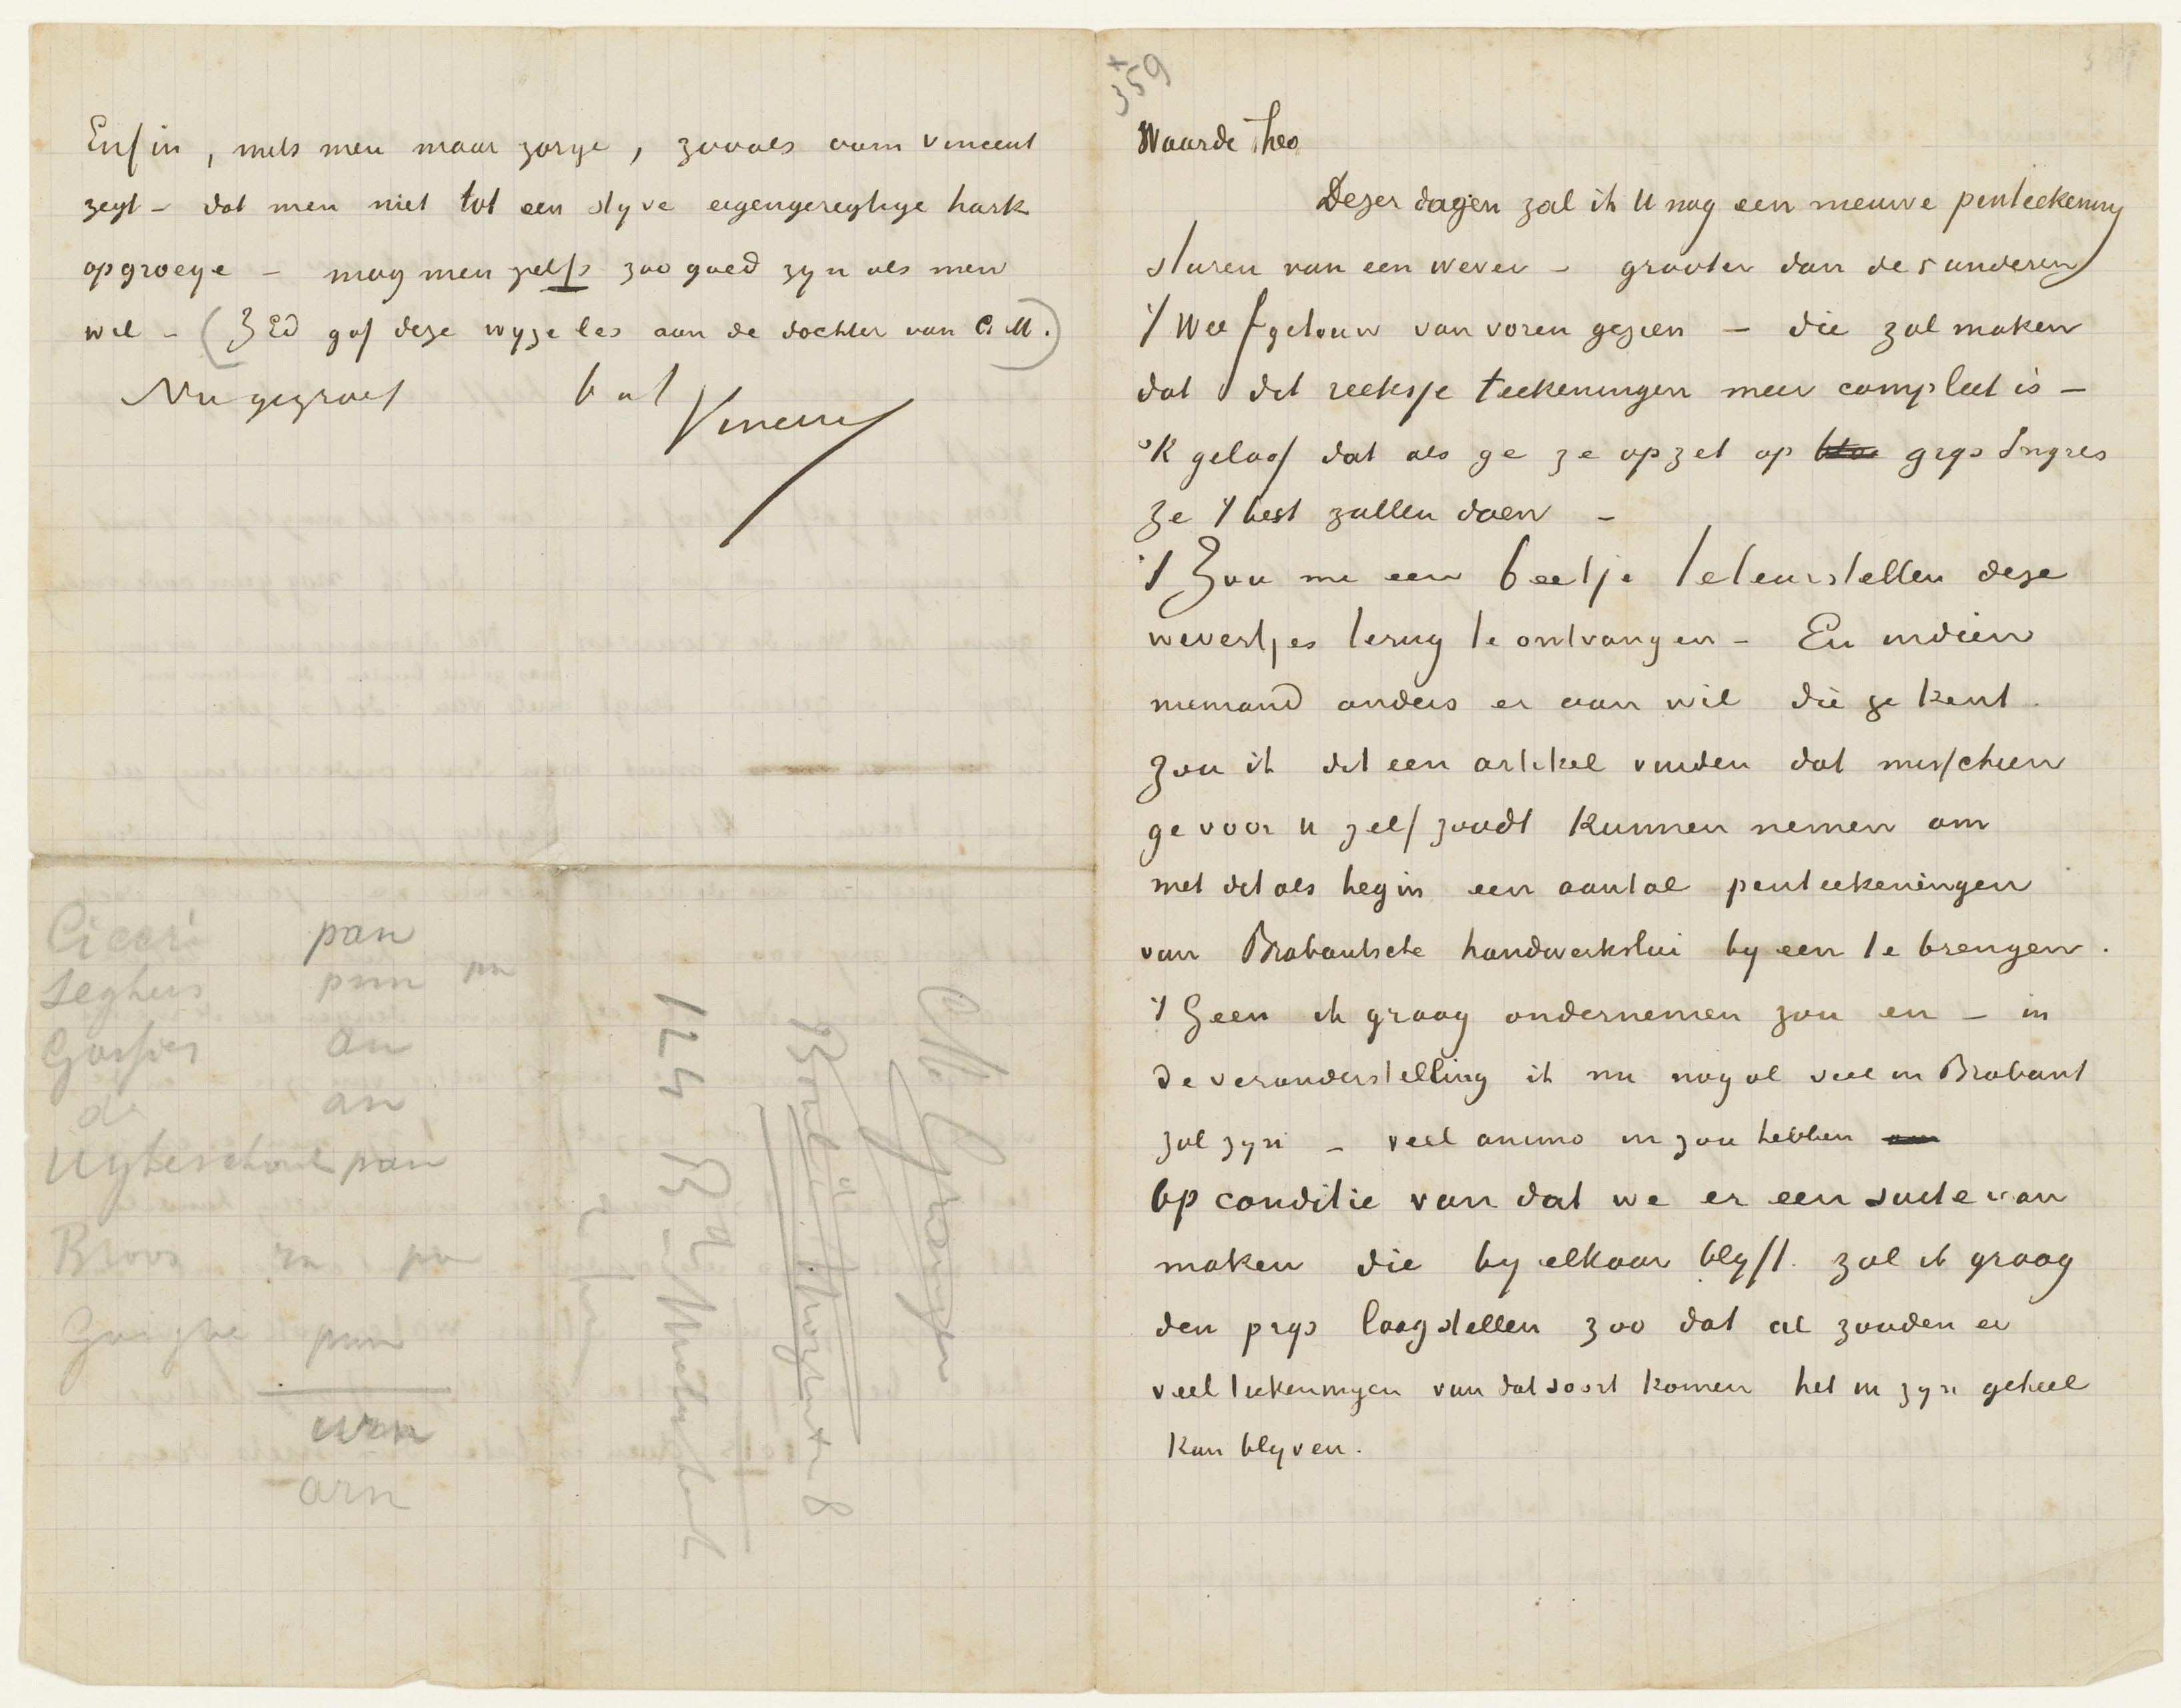 Enfin, mits men maar zorge, zooals oom Vincent
zegt – dat men niet tot een styve eigengeregtige hark
opgroeye – mag men zelfs zoo goed zyn als men
wil – (ZEd gaf deze wyze les aan de dochter van C.M.)
Nu gegroet b a t
Vincent
Ciceri pan
Seghers pnn pn
Gossier an
de an
Uyterschout pan
Broos rn pn
pnn
urn
arn
359
Waarde Theo
Dezer dagen zal ik U nog een nieuwe penteekening
sturen van een wever – grooter dan de 5 anderen
't Weefgetouw van voren gezien – die zal maken
dat dit reeksje teekeningen meer compleet is –
ik geloof dat als ge ze opzet op grys Ingres
ze 't best zullen doen –
't Zou me een beetje teleurstellen deze
wevertjes terug te ontvangen – En indien
niemand anders er aan wil die ge kent
zou ik dit een artikel vinden dat misschien
ge voor u zelf zoudt kunnen nemen om
met dit als begin een aantal penteekeningen
van Brabantsche handwerkslui byeen te brengen.
't Geen ik graag ondernemen zou en – in
de veronderstelling ik nu nog al veel in Brabant
zal zyn – veel animo in zou hebben
Op conditie van dat we er een suite van
maken die by elkaar blyft. zal ik graag
den prys laag stellen zoo dat al zouden er
veel teekeningen van dat soort komen het in zyn geheel
kan blyven.